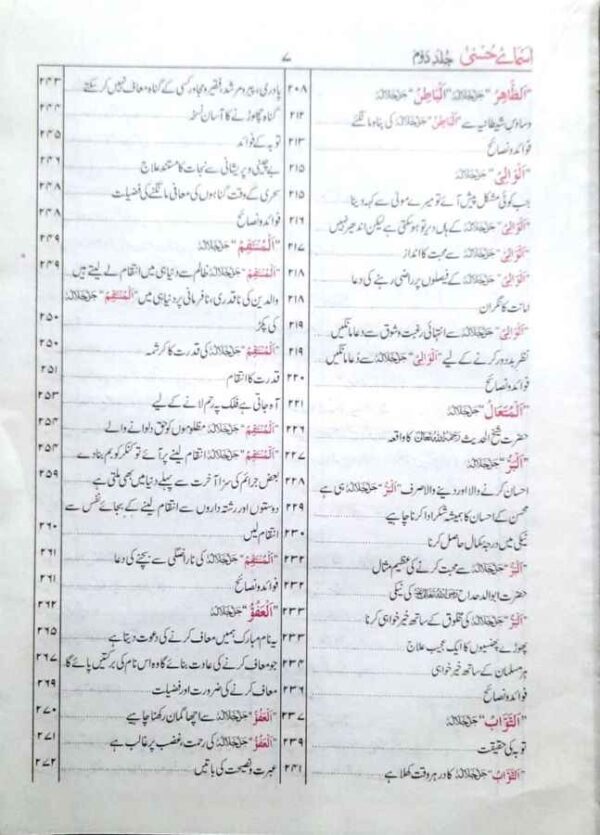 اسمائے حُسنیٰ جلد دوم ۷
"اَلظَّاهِرُ" جَلَّ جَلَالُهُ "اَلْبَاطِنُ" جَلَّ جَلَالُهُ ۲۰۸
وساوس شیطانیہ سے "اَلْبَاطِنُ" جَلَّ جَلَالُهُ کی پناہ مانگئے ۲۱۲
فوائد و نصائح ۲۱۳
"اَلْوَالِیْ" جَلَّ جَلَالُهُ ۲۱۵
جب کوئی مشکل پیش آئے تو میرے مولیٰ سے کہہ دینا ۲۱۵
"اَلْوَالِیْ" جَلَّ جَلَالُهُ کے ہاں دیر تو ہو سکتی ہے لیکن اندھیر نہیں ۲۱۶
"اَلْوَالِیْ" جَلَّ جَلَالُهُ سے محبت کا انداز ۲۱۷
"اَلْوَالِیْ" جَلَّ جَلَالُهُ کے فیصلوں پر راضی رہنے کی دعا ۲۱۸
امانت کا نگران ۲۱۸
"اَلْوَالِیْ" جَلَّ جَلَالُهُ سے انتہائی رغبت و شوق سے دعا مانگیں ۲۱۹
نظر بد دور کرنے کے لیے "اَلْوَالِیْ" جَلَّ جَلَالُهُ سے دُعا مانگیں ۲۱۹
فوائد و نصائح ۲۲۰
"اَلْمُتَعَالُ" جَلَّ جَلَالُهُ ۲۲۱
حضرت شیخ الحدیث رَحِمَهُ اللهُ تَعَالٰی کا واقعہ ۲۲۶
"اَلْبَرُّ" جَلَّ جَلَالُهُ ۲۲۷
احسان کرنے والا اور دینے والا صرف "اَلْبَرُّ" جَلَّ جَلَالُهُ ہی ہے ۲۲۸
محسن کے احسان کا ہمیشہ شکر ادا کرنا چاہیے ۲۲۹
نیکی میں درجہ کمال حاصل کرنا ۲۳۰
"اَلْبَرُّ" جَلَّ جَلَالُهُ سے محبت کرنے کی عظیم مثال ۲۳۲
حضرت ابوالدحداح رَضِیَ اللهُ تَعَالٰی عَنْهُ کی نیکی ۲۳۲
"اَلْبَرُّ" جَلَّ جَلَالُهُ کی مخلوق کے ساتھ خیر خواہی کرنا ۲۳۳
پھوڑے پھنسیوں کا ایک عجیب علاج ۲۳۳
ہر مسلمان کے ساتھ خیر خواہی ۲۳۴
فوائد و نصائح ۲۳۶
"اَلتَّوَّابُ" جَلَّ جَلَالُهُ ۲۳۷
توبہ کی حقیقت ۲۳۹
"اَلتَّوَّابُ" جَلَّ جَلَالُهُ کا در ہر وقت کھلا ہے ۲۴۱
پادری، پیر و مرشد، فقیر و مجاور کسی کے گناہ معاف نہیں کر سکتے ۲۴۳
گناہ چھوڑنے کا آسان نسخہ ۲۴۴
توبہ کے فوائد ۲۴۵
بے چینی و پریشانی سے نجات کا مستند علاج ۲۴۶
سحری کے وقت گناہوں کی معافی مانگنے کی فضیلت ۲۴۸
فوائد و نصائح ۲۴۸
"اَلْمُنْتَقِمُ" جَلَّ جَلَالُهُ ۲۴۹
"اَلْمُنْتَقِمُ" جَلَّ جَلَالُهُ ظالم سے دنیا ہی میں انتقام لے لیتے ہیں ۲۴۹
والدین کی ناقدری، نافرمانی پر دنیا ہی میں "اَلْمُنْتَقِمُ" جَلَّ جَلَالُهُ
کی پکڑ ۲۵۰
"اَلْمُنْتَقِمُ" جَلَّ جَلَالُهُ کی قدرت کا کرشمہ ۲۵۰
قدرت کا انتقام ۲۵۱
آہ جاتی ہے فلک پہ رحم لانے کے لیے ۲۵۳
"اَلْمُنْتَقِمُ" جَلَّ جَلَالُهُ مظلوموں کو حق دلوانے والے ۲۵۴
"اَلْمُنْتَقِمُ" جَلَّ جَلَالُهُ انتقام لینے پر آئے تو کنکر کو بم بنا دے ۲۵۴
بعض جرائم کی سزا آخرت سے پہلے دنیا میں بھی ملتی ہے ۲۵۹
دوستوں اور رشتہ داروں سے انتقام لینے کے بجائے نفس سے
انتقام لیں ۲۶۰
"اَلْمُنْتَقِمُ" جَلَّ جَلَالُهُ کی ناراضگی سے بچنے کی دعا ۲۶۱
فوائد و نصائح ۲۶۱
"اَلْعَفُوُّ" جَلَّ جَلَالُهُ ۲۶۲
یہ نام مبارک ہمیں معاف کرنے کی دعوت دیتا ہے ۲۶۵
جو معاف کرنے کی عادت بنائے گا وہ اس نام کی برکتیں پائے گا ۲۶۷
معاف کرنے کی ضرورت اور فضیلت ۲۶۹
"اَلْعَفُوُّ" جَلَّ جَلَالُهُ سے اچھا گمان رکھنا چاہیے ۲۷۰
"اَلْعَفُوُّ" جَلَّ جَلَالُهُ کی رحمت، غضب پر غالب ہے ۲۷۱
عبرت و نصیحت کی باتیں ۲۷۲